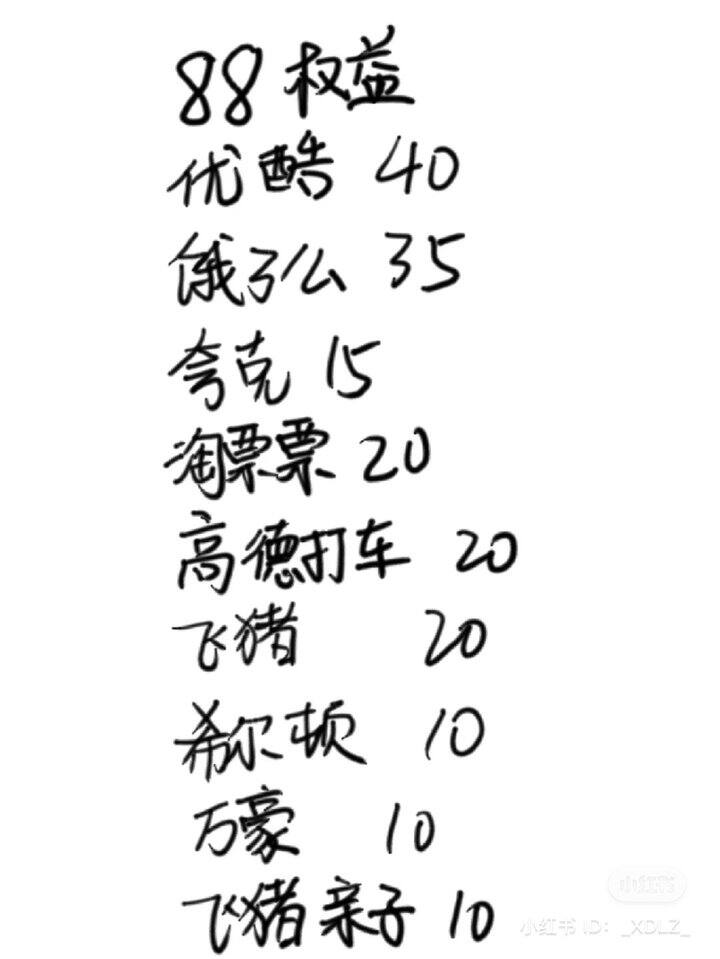 88 权益
优酷 40
饿了么 35
夸克 15
淘票票 20
高德打车 20
飞猪 20
希尔顿 10
万豪 10
飞猪亲子 10
小红书
小红书 ID: _XDLZ_